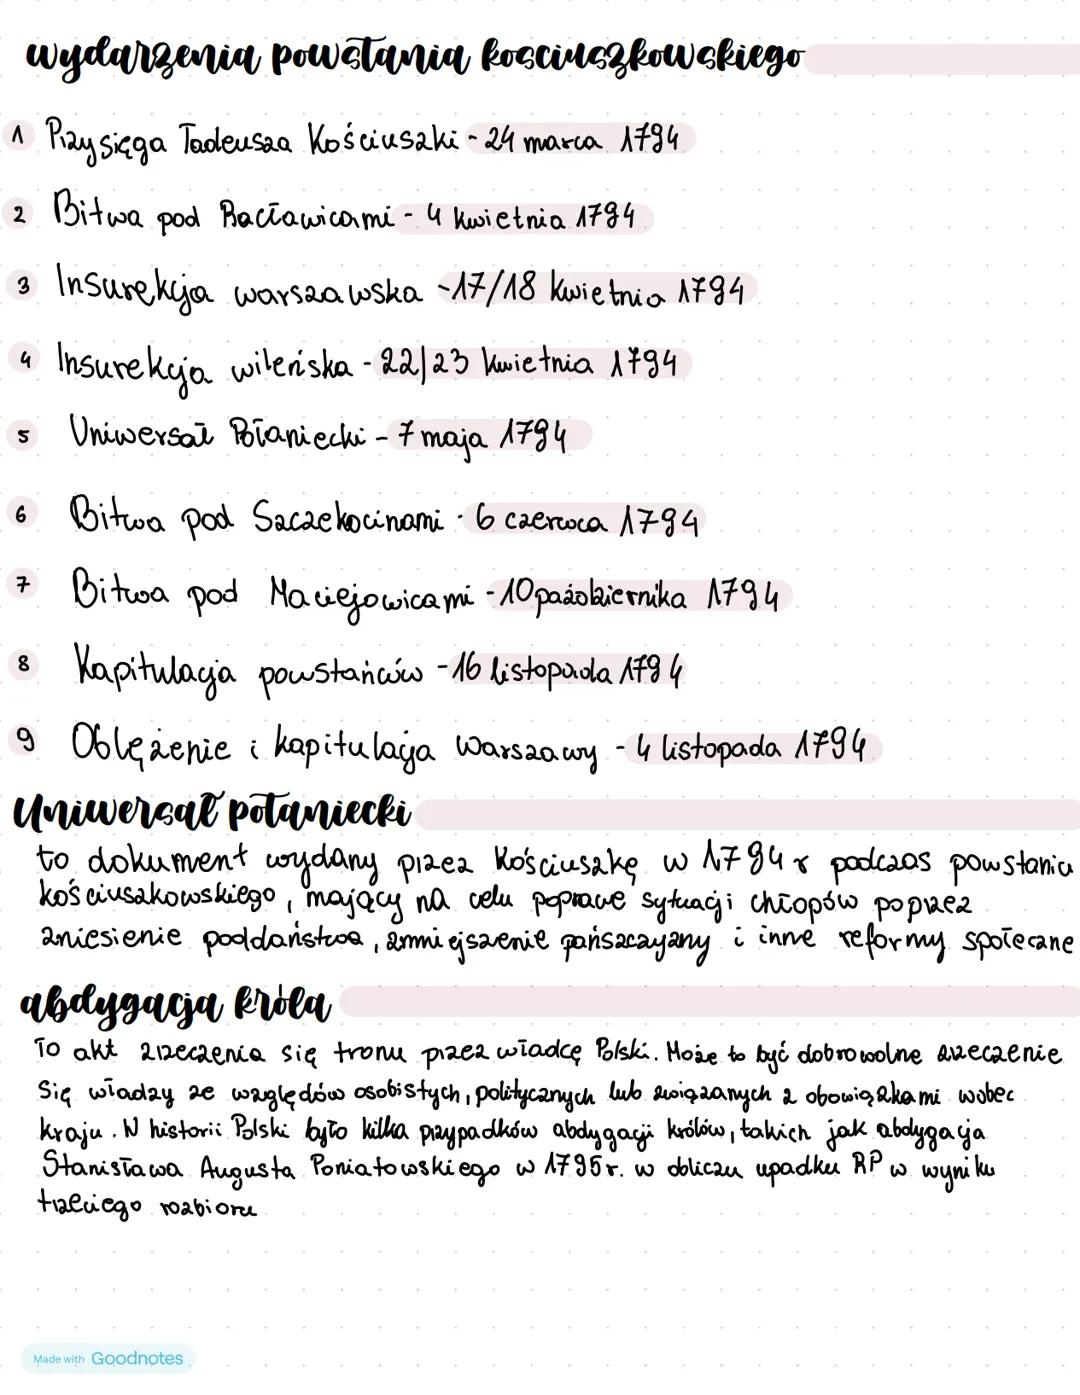 wydarzenia powstania kosciuszkowskiego
1 Przysięga Tadeusza Kościuszki - 24 marca 1794
2 Bitwa pod Racławicami - 4 kwietnia 1794
3 Insurekcja warszawska - 17/18 kwietnia 1794
4 Insurekcja wileńska - 22/23 kwietnia 1794
5 Uniwersał Połaniecki - 7 maja 1794
6 Bitwa pod Szczekocinami - 6 czerwca 1794
7 Bitwa pod Maciejowicami - 10 października 1794
8 Kapitulacja powstańców - 16 listopada 1794
9 Oblężenie i kapitulacja Warszawy - 4 listopada 1794
Uniwersał połaniecki
to dokument wydany przez Kościuszkę w 1794 r podczas powstania
kościuszkowskiego, mający na celu poprawe sytuacji chłopów poprzez
zniesienie poddaństwa, zmniejszenie pańszczyzny i inne reformy społeczne
abdygacja króla
To akt zrzeczenia się tronu przez władcę Polski. Może to być dobrowolne zrzeczenie
się władzy ze względów osobistych, politycznych lub związanych z obowiązkami wobec
kraju. W historii Polski było kilka przypadków abdygacji królów, takich jak abdygacja
Stanisława Augusta Poniatowskiego w 1795r. w obliczu upadku RP w wyniku
trzeciego rozbioru
Made with Goodnotes